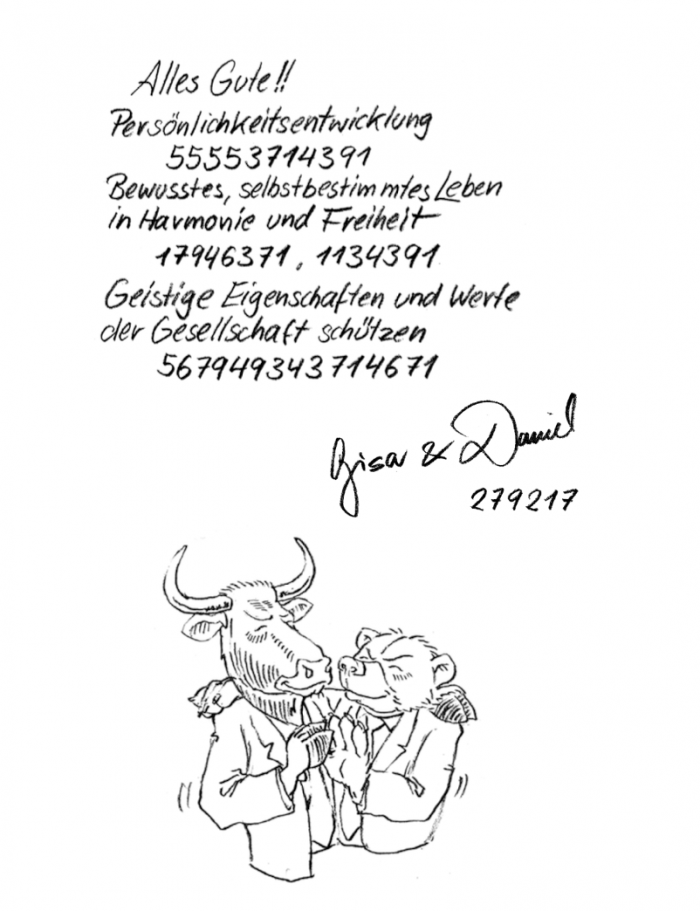 Alles Gute!!
Persönlichkeitsentwicklung
55553714391
Bewusstes, selbstbestimmtes Leben
in Harmonie und Freiheit
17946371, 1134391
Geistige Eigenschaften und Werte
der Gesellschaft schützen
567949343714671
& Daniel
279217